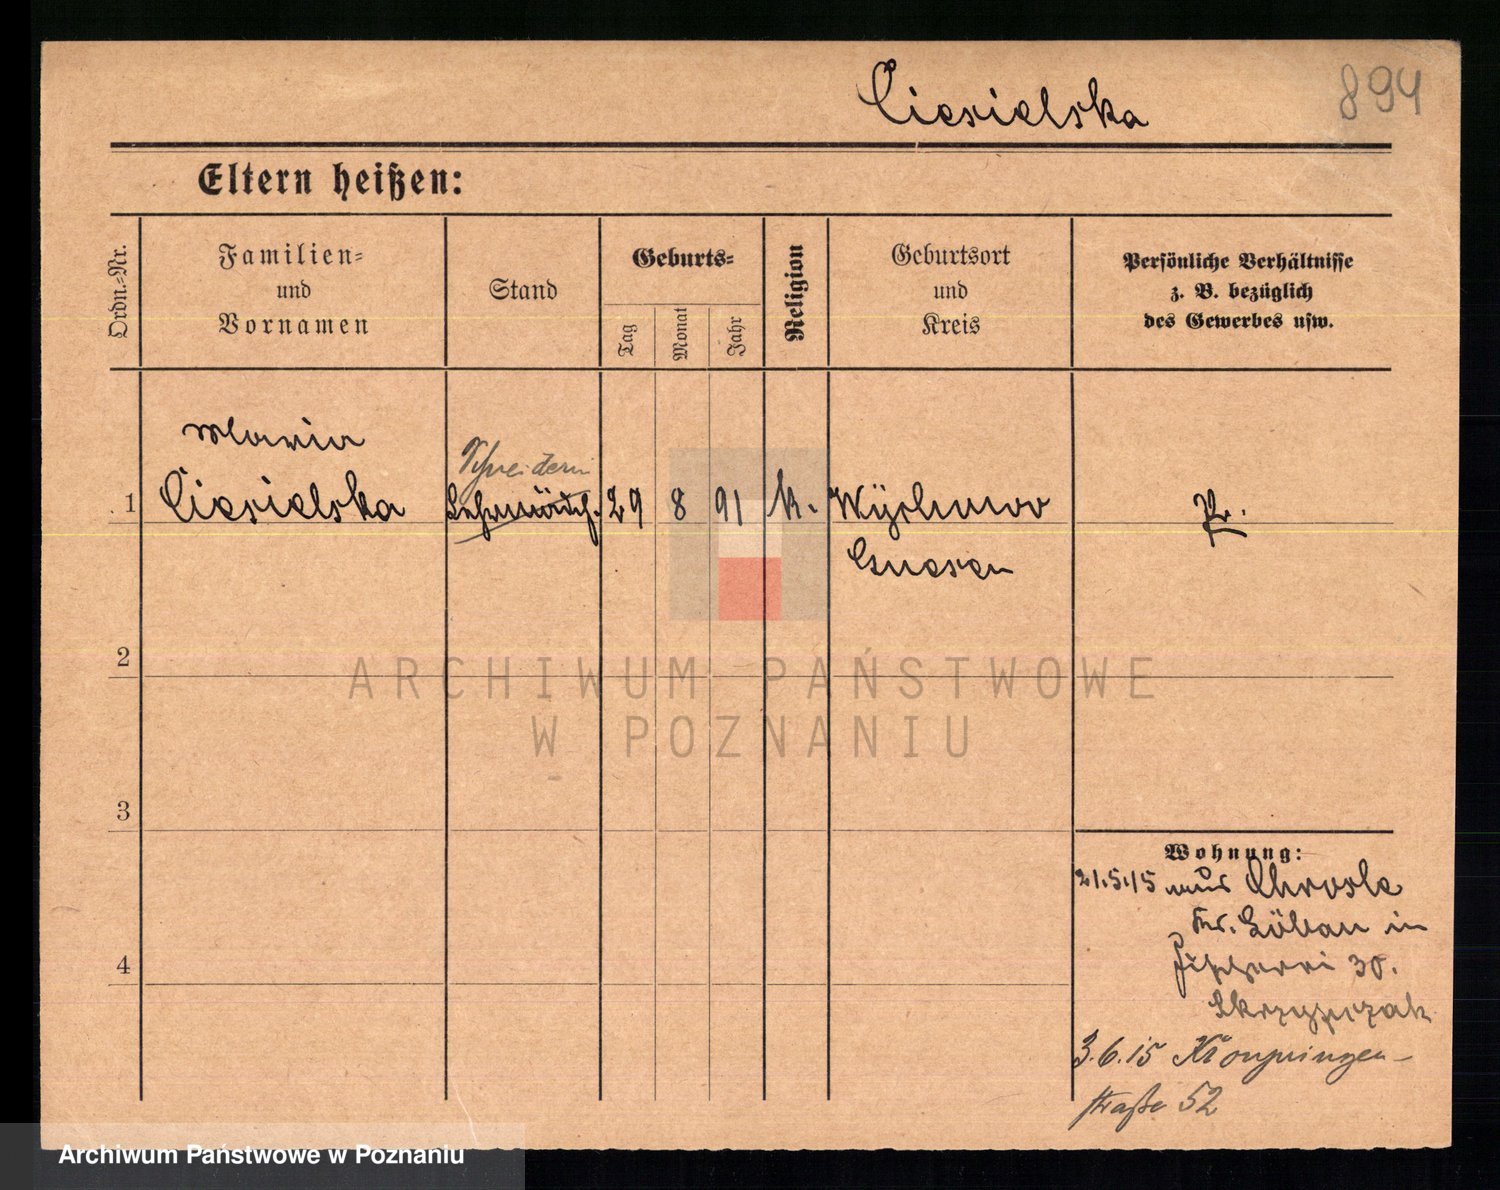 Ciesielska 894
Eltern heißen:
Ordn.=Nr.
Familien=
und
Vornamen
Stand
Geburts=
Tag
Monat
Jahr
Religion
Geburtsort
und
Kreis
Persönliche Verhältnisse
z. B. bezüglich
des Gewerbes usw.
Maria
Schneiderin
1 Ciesielska 29 8 91 k. Pr.
Gnesen
2
3
4
Wohnung:
21.5.15 aus Chrosle
Kr. Löbau in
Fischerei 30.
Skrzypczak
3.6.15 Kronprinzen-
straße 52
ARCHIWUM PAŃSTWOWE
W POZNANIU
Archiwum Państwowe w Poznaniu